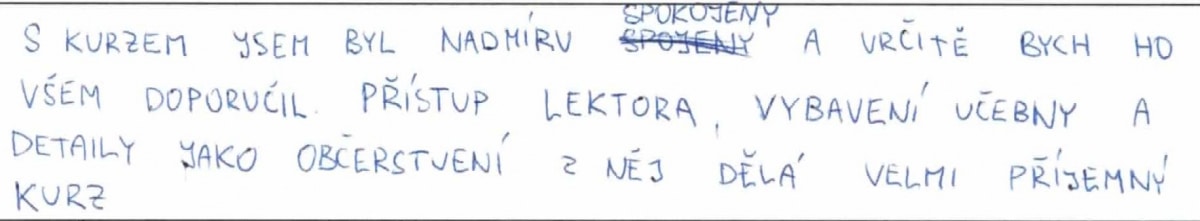 S KURZEM JSEM BYL NADMÍRU SPOKOJENÝ A VRČITĚ BYCH HO
VŠEM DOPORUČIL. PŘÍSTUP LEKTORA, VYBAVENÍ UČEBNY A
DETAILY JAKO OBČERSTVENÍ Z NĚJ DĚLÁ VELMI PŘÍJEMNÝ
KURZ